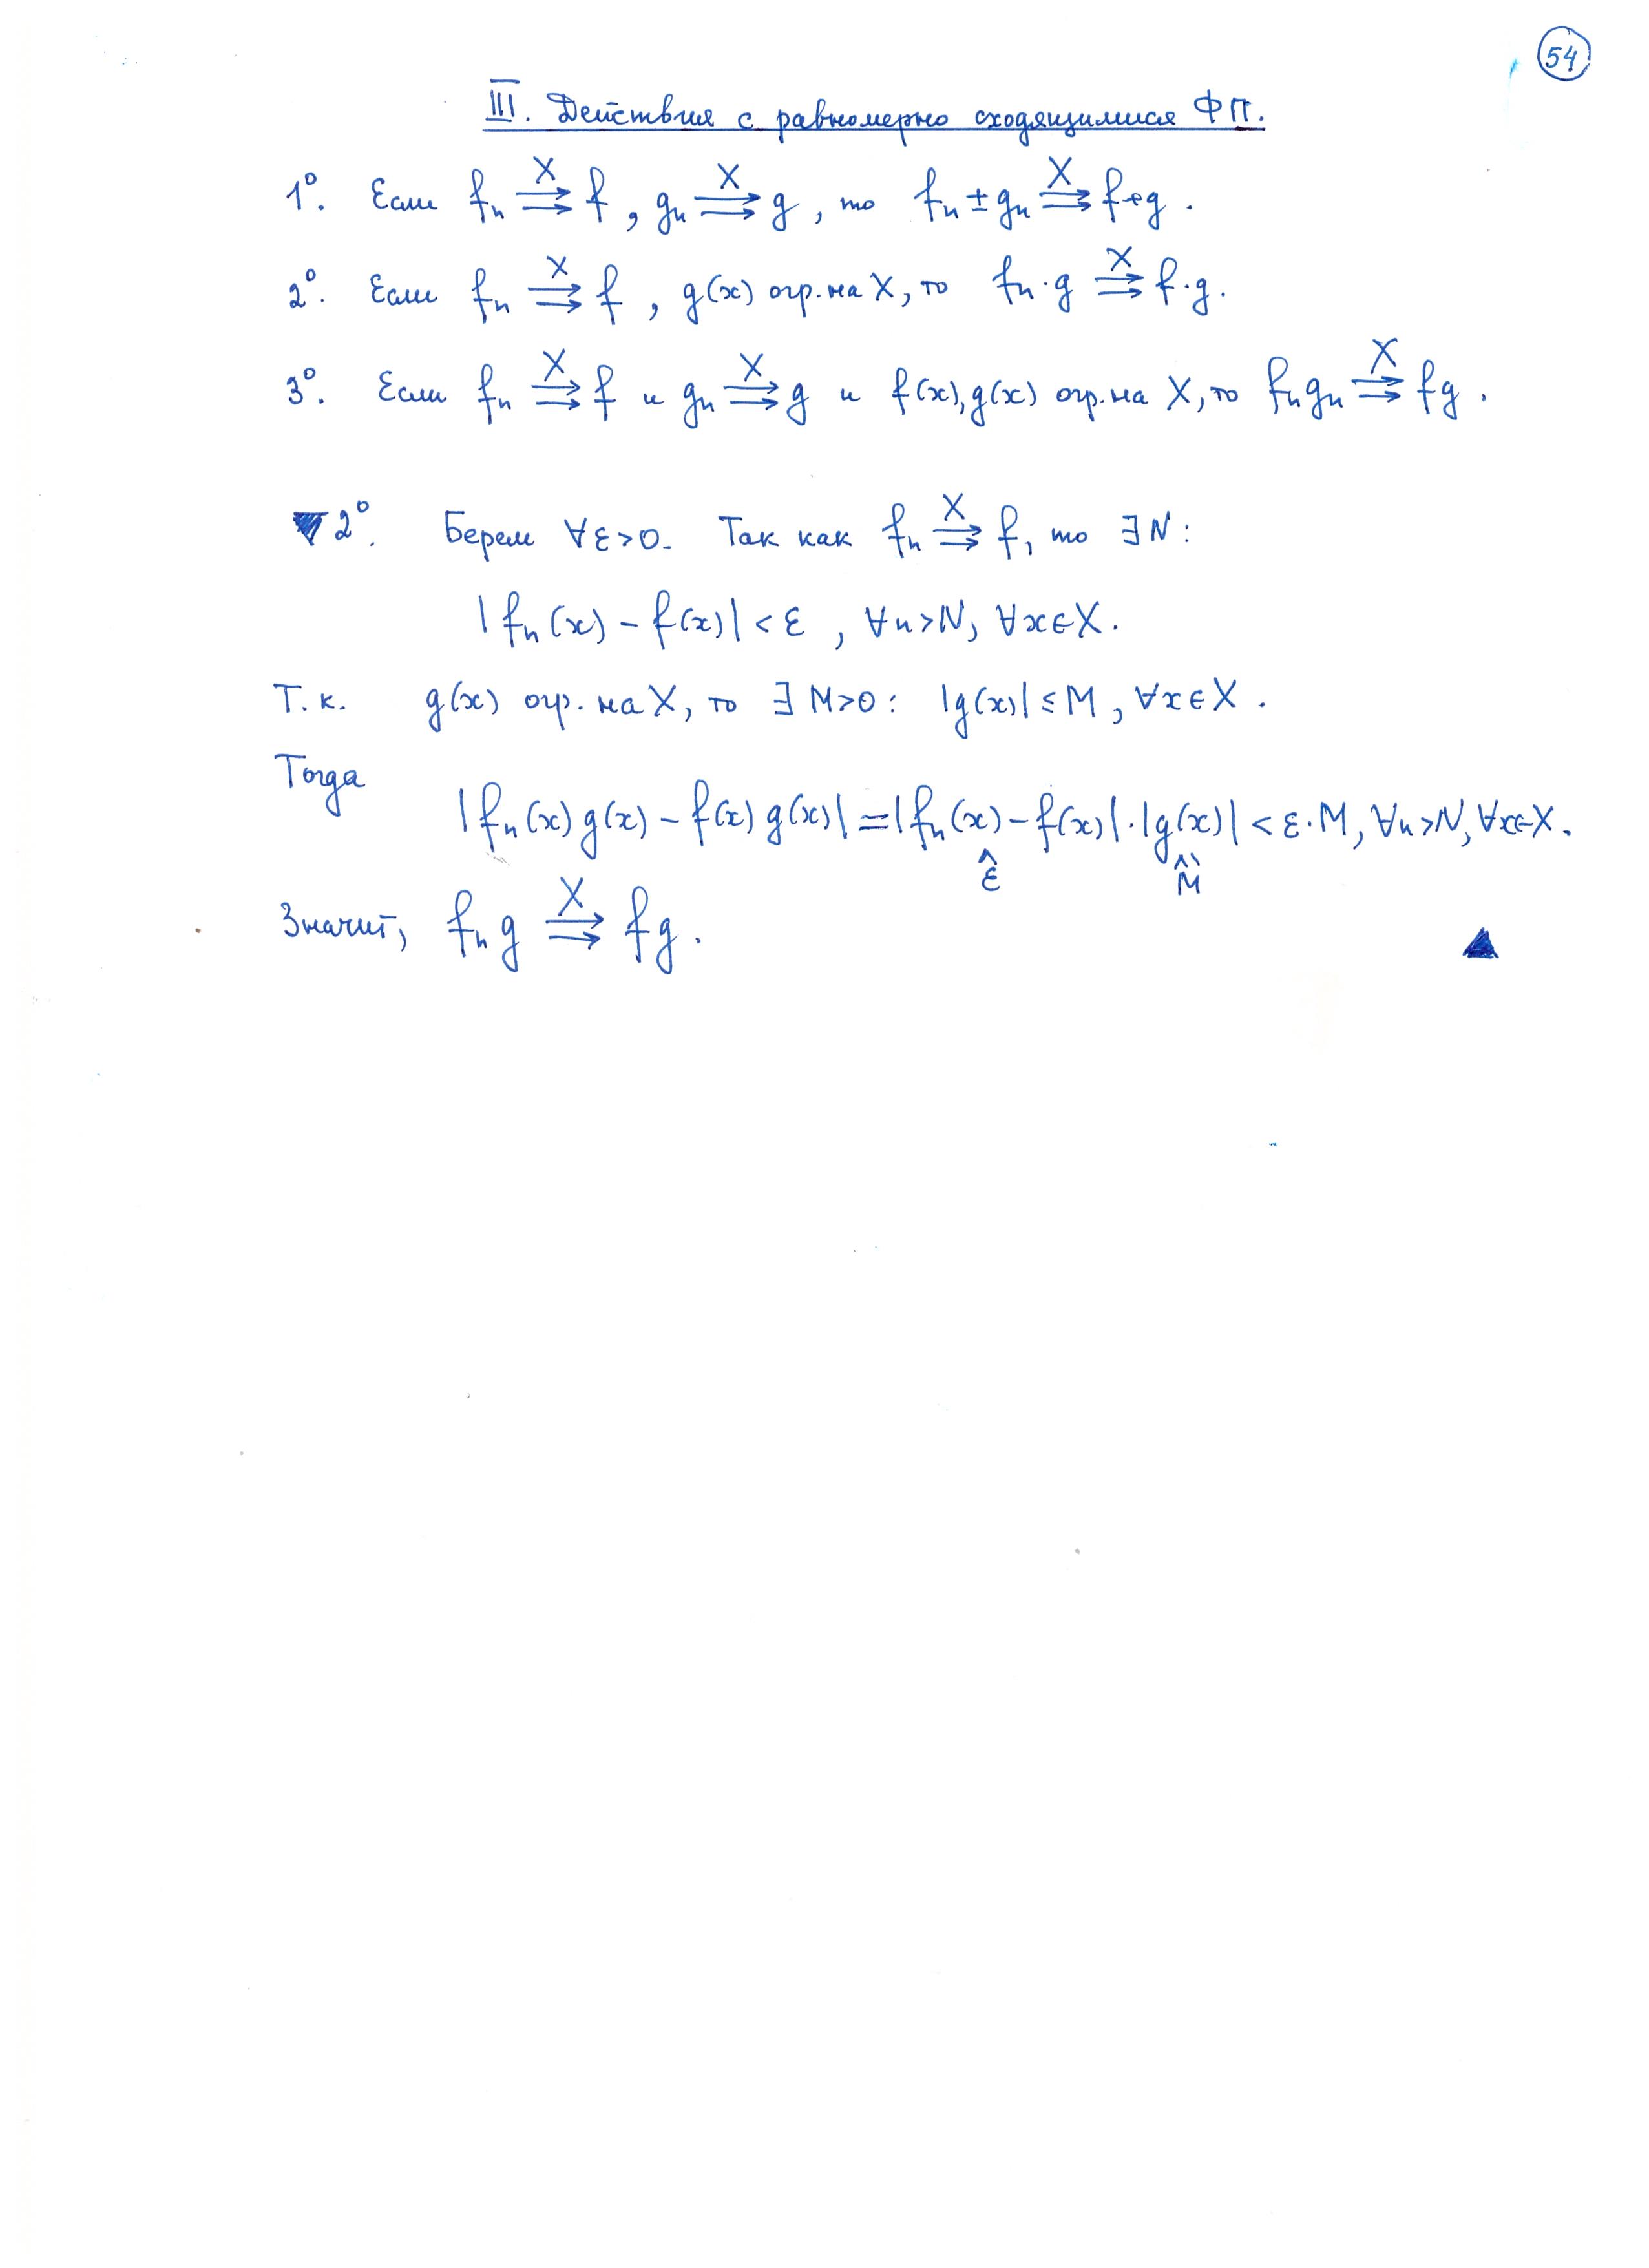 54
III. Действия с равномерно сходящимися ФП.
1°. Если fₙ ⇉ˣ f, gₙ ⇉ˣ g, то fₙ ± gₙ ⇉ˣ f+g.
2°. Если fₙ ⇉ˣ f, g(x) огр. на X, то fₙ·g ⇉ˣ f·g.
3°. Если fₙ ⇉ˣ f и gₙ ⇉ˣ g и f(x), g(x) огр. на X, то fₙgₙ ⇉ˣ fg.
▼2°. Берем ∀ε>0. Так как fₙ ⇉ˣ f, то ∃N:
|fₙ(x) – f(x)| < ε, ∀n>N, ∀x∈X.
Т.к. g(x) огр. на X, то ∃ M>0: |g(x)| ≤ M, ∀x∈X.
Тогда
|fₙ(x) g(x) – f(x) g(x)| = |fₙ(x) – f(x)|·|g(x)| < ε·M, ∀n>N, ∀x∈X.
^ε ^^M
Значит, fₙ g ⇉ˣ fg. ▲